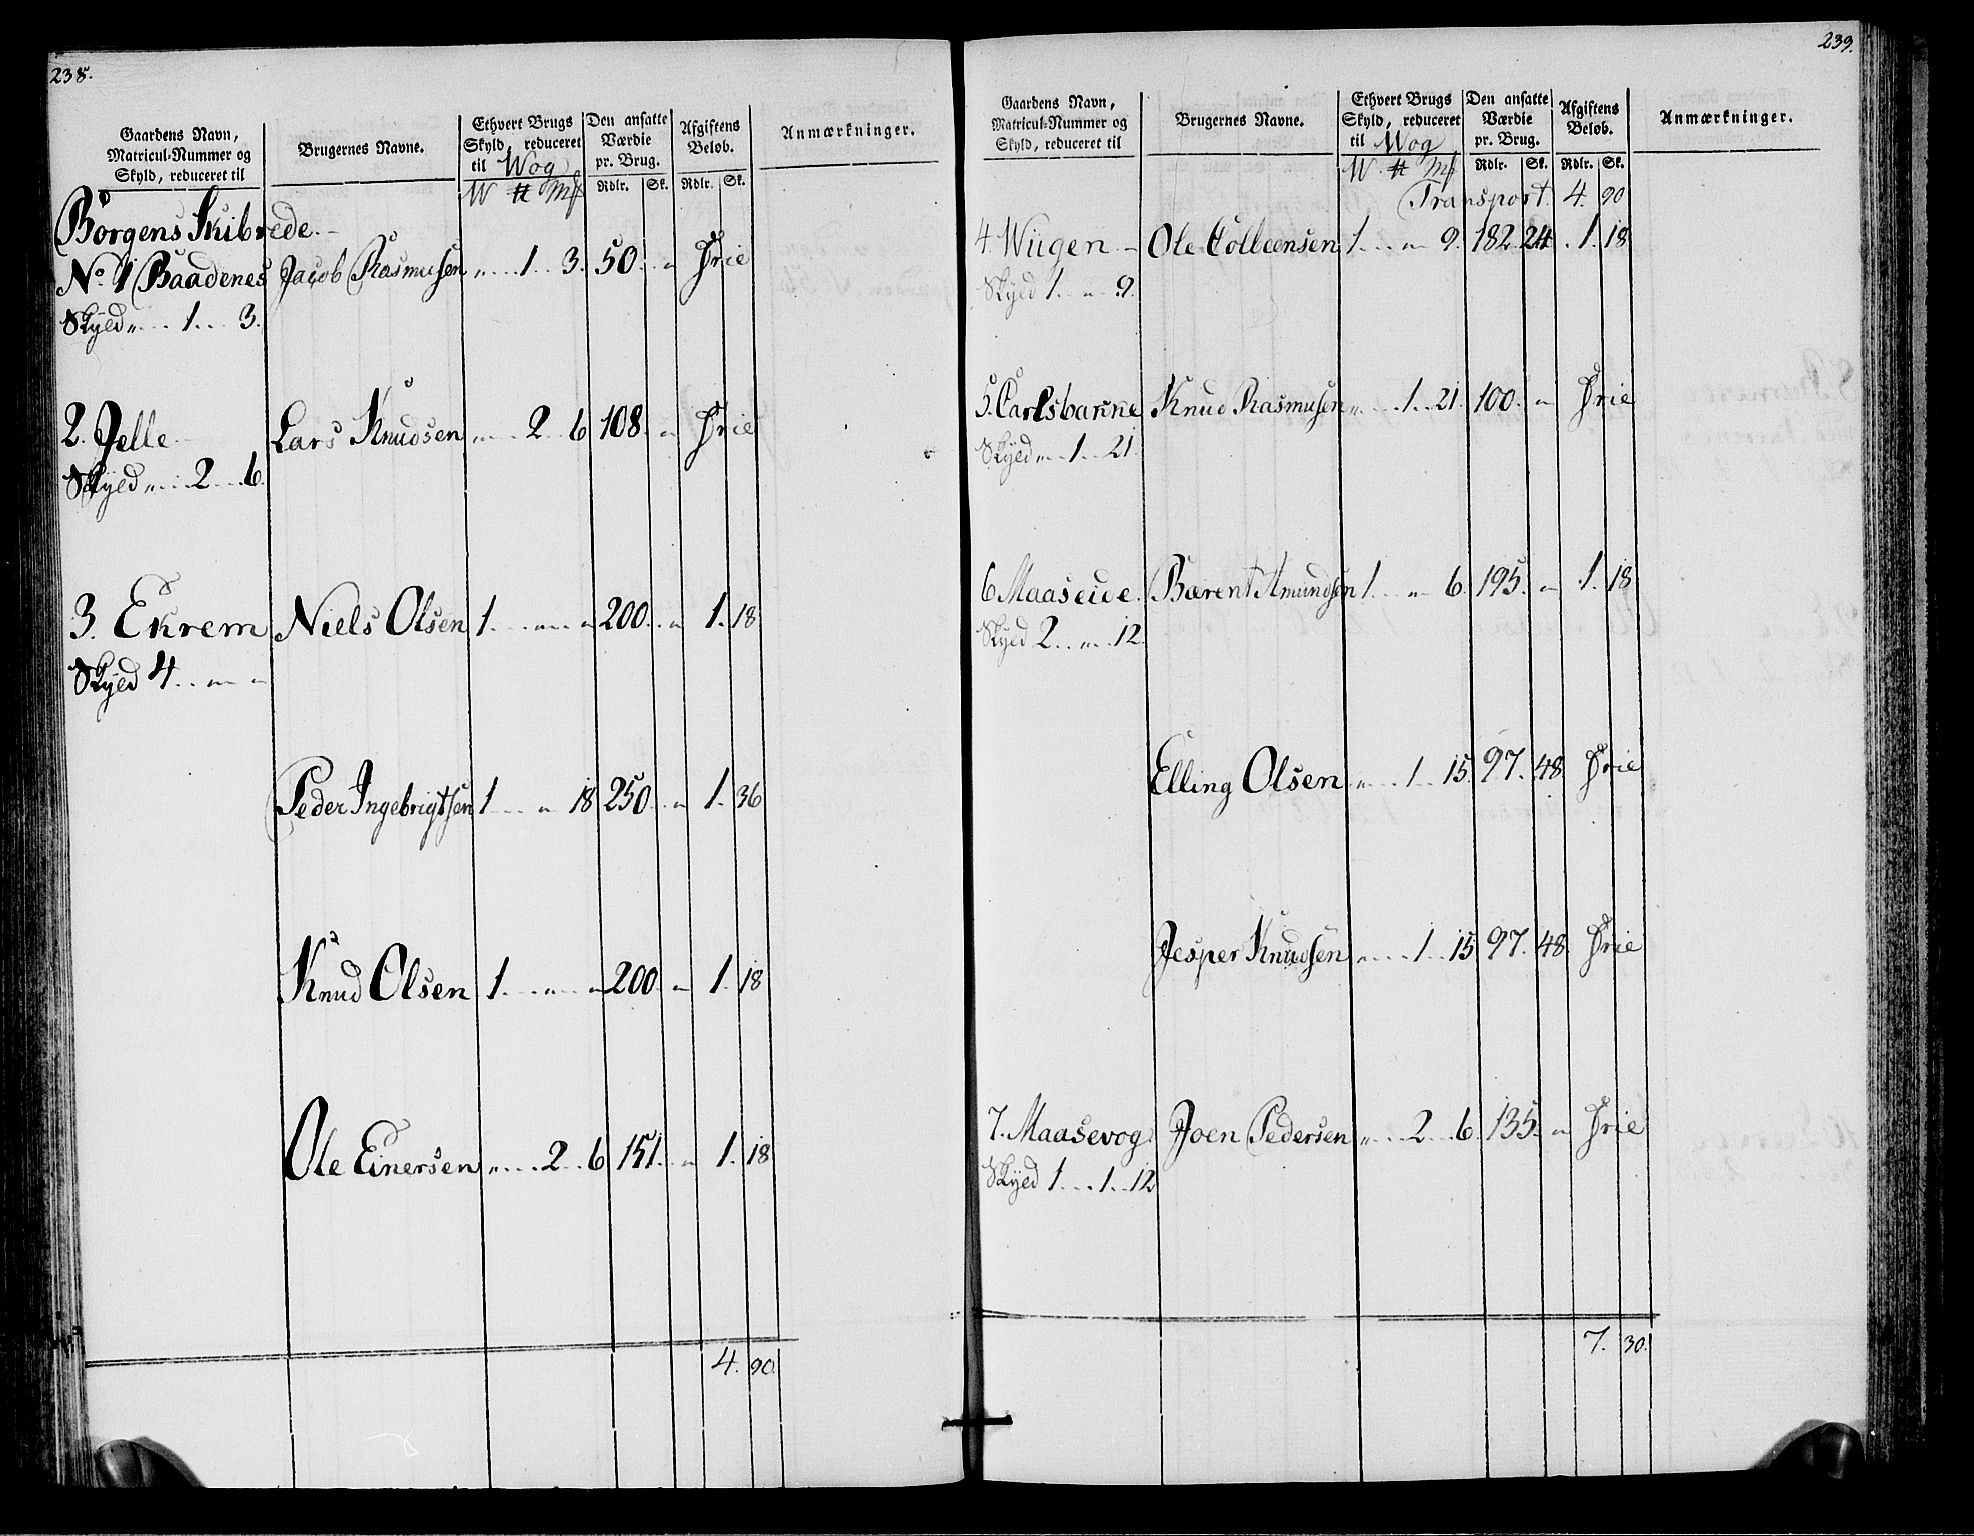 238.
Gaardens Navn, Matricul-Nummer og Skyld, reduceret til | Brugernes Navne. | Ethvert Brugs Skyld, reduceret til Wog | Den ansatte Værdie pr. Brug. | Afgiftens Beløb. | Anmærkninger.
W ℔ Mk | Rdlr. | Sk. | Rdlr. | Sk.
Borgens Skibrede.
No. 1 Baadenes | Jacob Rasmusen | „ 1 3. | 50. | „ | Frie
Skyld „ 1 3.
2. Jelle | Lars Knudsen | „ 2 6 | 108. | „ | Frie
Skyld „ 2 6.
3. Ekrem | Niels Olsen | 1 „ „ | 200. | „ | 1. | 18
Skyld 4 „ „
Peder Ingebrigtsen | 1 „ 18 | 250. | „ | 1. | 36
Knud Olsen | 1 „ „ | 200 | „ | 1. | 18
Ole Einersen | „ 2 6 | 151. | „ | 1. | 18
4. 90.
239.
Gaardens Navn, Matricul-Nummer og Skyld, reduceret til | Brugernes Navne. | Ethvert Brugs Skyld, reduceret til Wog | Den ansatte Værdie pr. Brug. | Afgiftens Beløb. | Anmærkninger.
W ℔ Mk | Rdlr. | Sk. | Rdlr. | Sk.
Transport. 4. 90
4. Wiigen | Ole Colleensen | 1 „ 9. | 182 | 24 | 1. | 18
Skyld 1 „ 9.
5. Carlsbanne | Knud Rasmusen | „ 1 21. | 100. | „ | Frie
Skyld „ 1 21.
6 Maaseide. | Bærent Amundsen | 1 „ 6. | 195. | „ | 1. | 18
Skyld 2 „ 12.
Elling Olsen | „ 1 15. | 97. | 48 | Frie
Jesper Knudsen | „ 1 15 | 97. | 48. | Frie
7. Maasevog. | Joen Pedersen | „ 2 6. | 135. | „ | Frie
Skyld 1 1 12
7. 30.